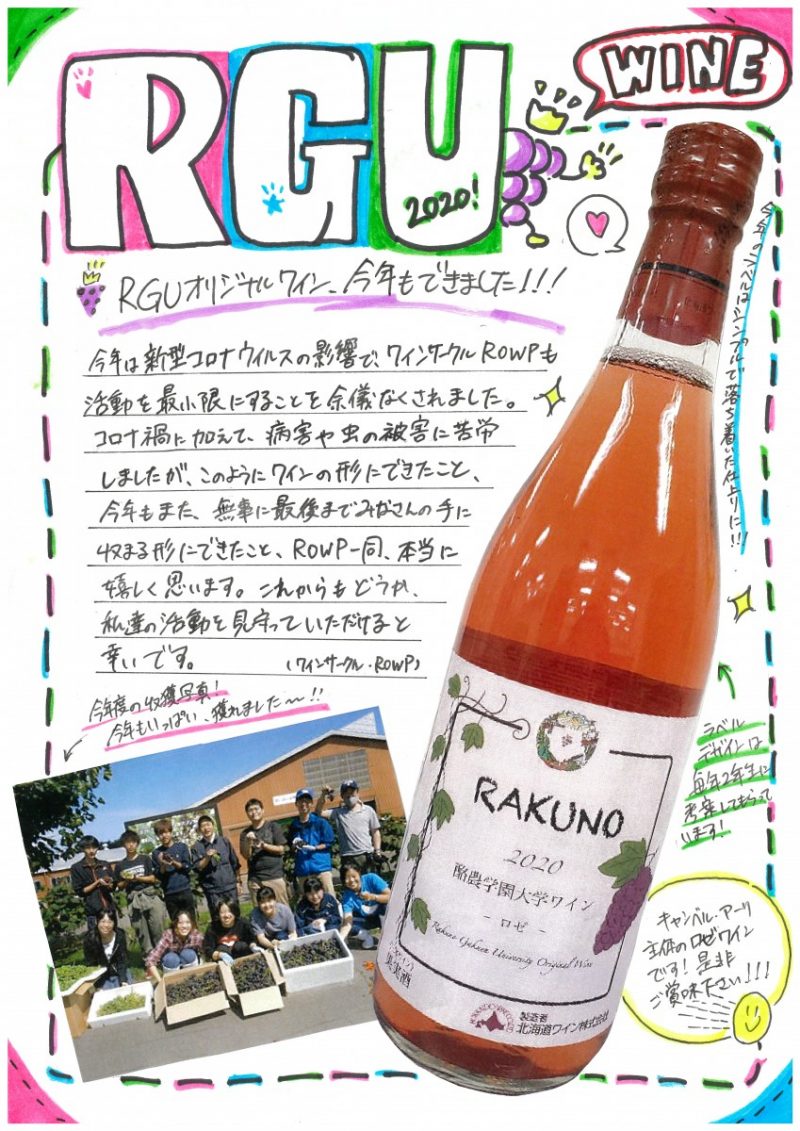 RGU
2020!
WINE
RGUオリジナルワイン、今年もできました!!!
今年は新型コロナウイルスの影響で、ワインサークルROWPも
活動を最小限にすることを余儀なくされました。
コロナ禍に加えて、病害や虫の被害に苦労
しましたが、このようにワインの形にできたこと、
今年もまた、無事に最後までみなさんの手に
収まる形にできたこと、ROWP一同、本当に
嬉しく思います。これからもどうか、
私達の活動を見守っていただけると
幸いです。
(ワインサークル・ROWP)
今年のラベルはシンプルで落ち着いた仕上りに!!!
今年度の収獲写真!
今年もいっぱい、獲れました〜!!
ラベル
デザインは
毎年2年生に
考案してもらって
います!
RAKUNO
2020
酪農学園大学ワイン
- ロゼ -
Rakuno Gakuen University Original Wine
果実酒
製造者
北海道ワイン株式会社
キャンベル・アーリ
主体のロゼワイン
です!是非
ご賞味下さい!!!